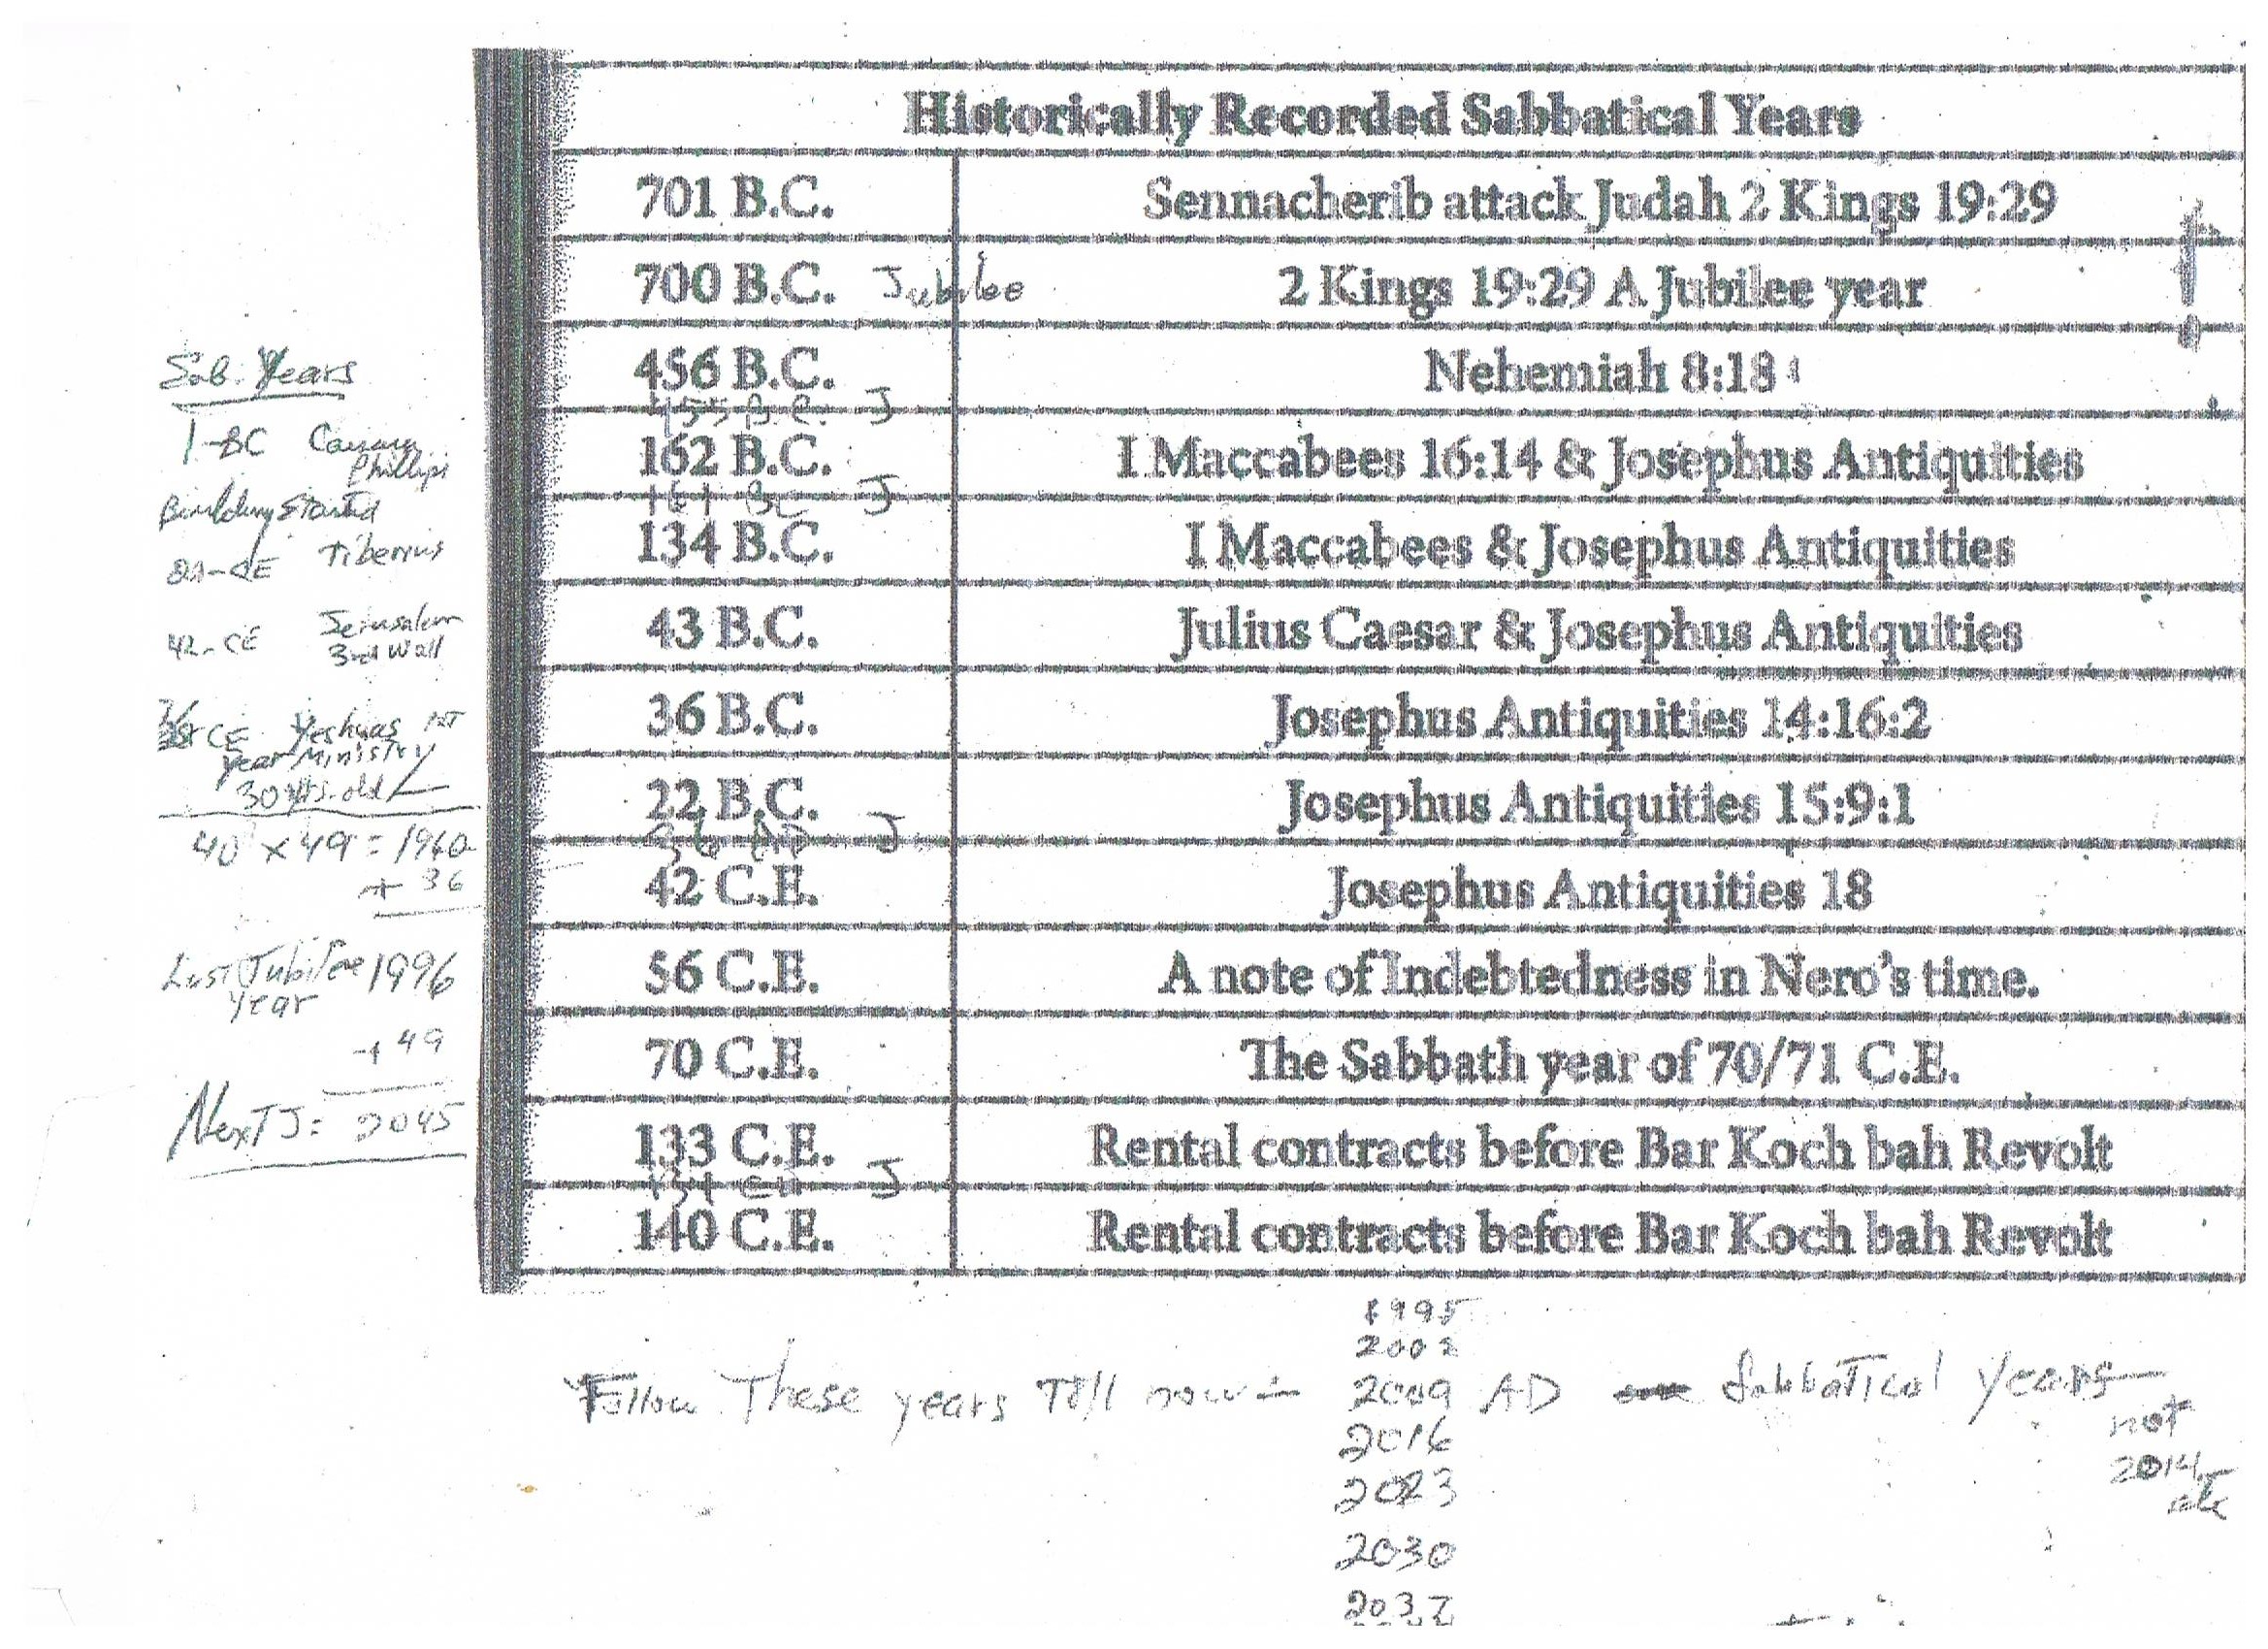 Historically Recorded Sabbatical Years
701 B.C. Sennacherib attack Judah 2 Kings 19:29
700 B.C. Jubilee 2 Kings 19:29 A Jubilee year
456 B.C. Nehemiah 8:18
455 B.C. J
162 B.C. I Maccabees 16:14 & Josephus Antiquities
161 BC J
134 B.C. I Maccabees & Josephus Antiquities
43 B.C. Julius Caesar & Josephus Antiquities
36 B.C. Josephus Antiquities 14:16:2
22 B.C. Josephus Antiquities 15:9:1
36 AD J
42 C.E. Josephus Antiquities 18
56 C.E. A note of Indebtedness in Nero's time.
70 C.E. The Sabbath year of 70/71 C.E.
133 C.E. Rental contracts before Bar Koch bah Revolt
134 J
140 C.E. Rental contracts before Bar Koch bah Revolt
Sab. Years
1-BC
Phillipi
Building Started
Tiberius
42-CE Jerusalem
3rd Wall
CE Yeshuas 1st
year Ministry
30 yrs. old
40 x 49 = 1960
+ 36
Last Jubilee 1996
year
+ 49
Next J = 2045
1995
2002
Follow These years Till now - 2009 AD Sabbatical Years
not
2016
2014
etc
2023
2030
2037